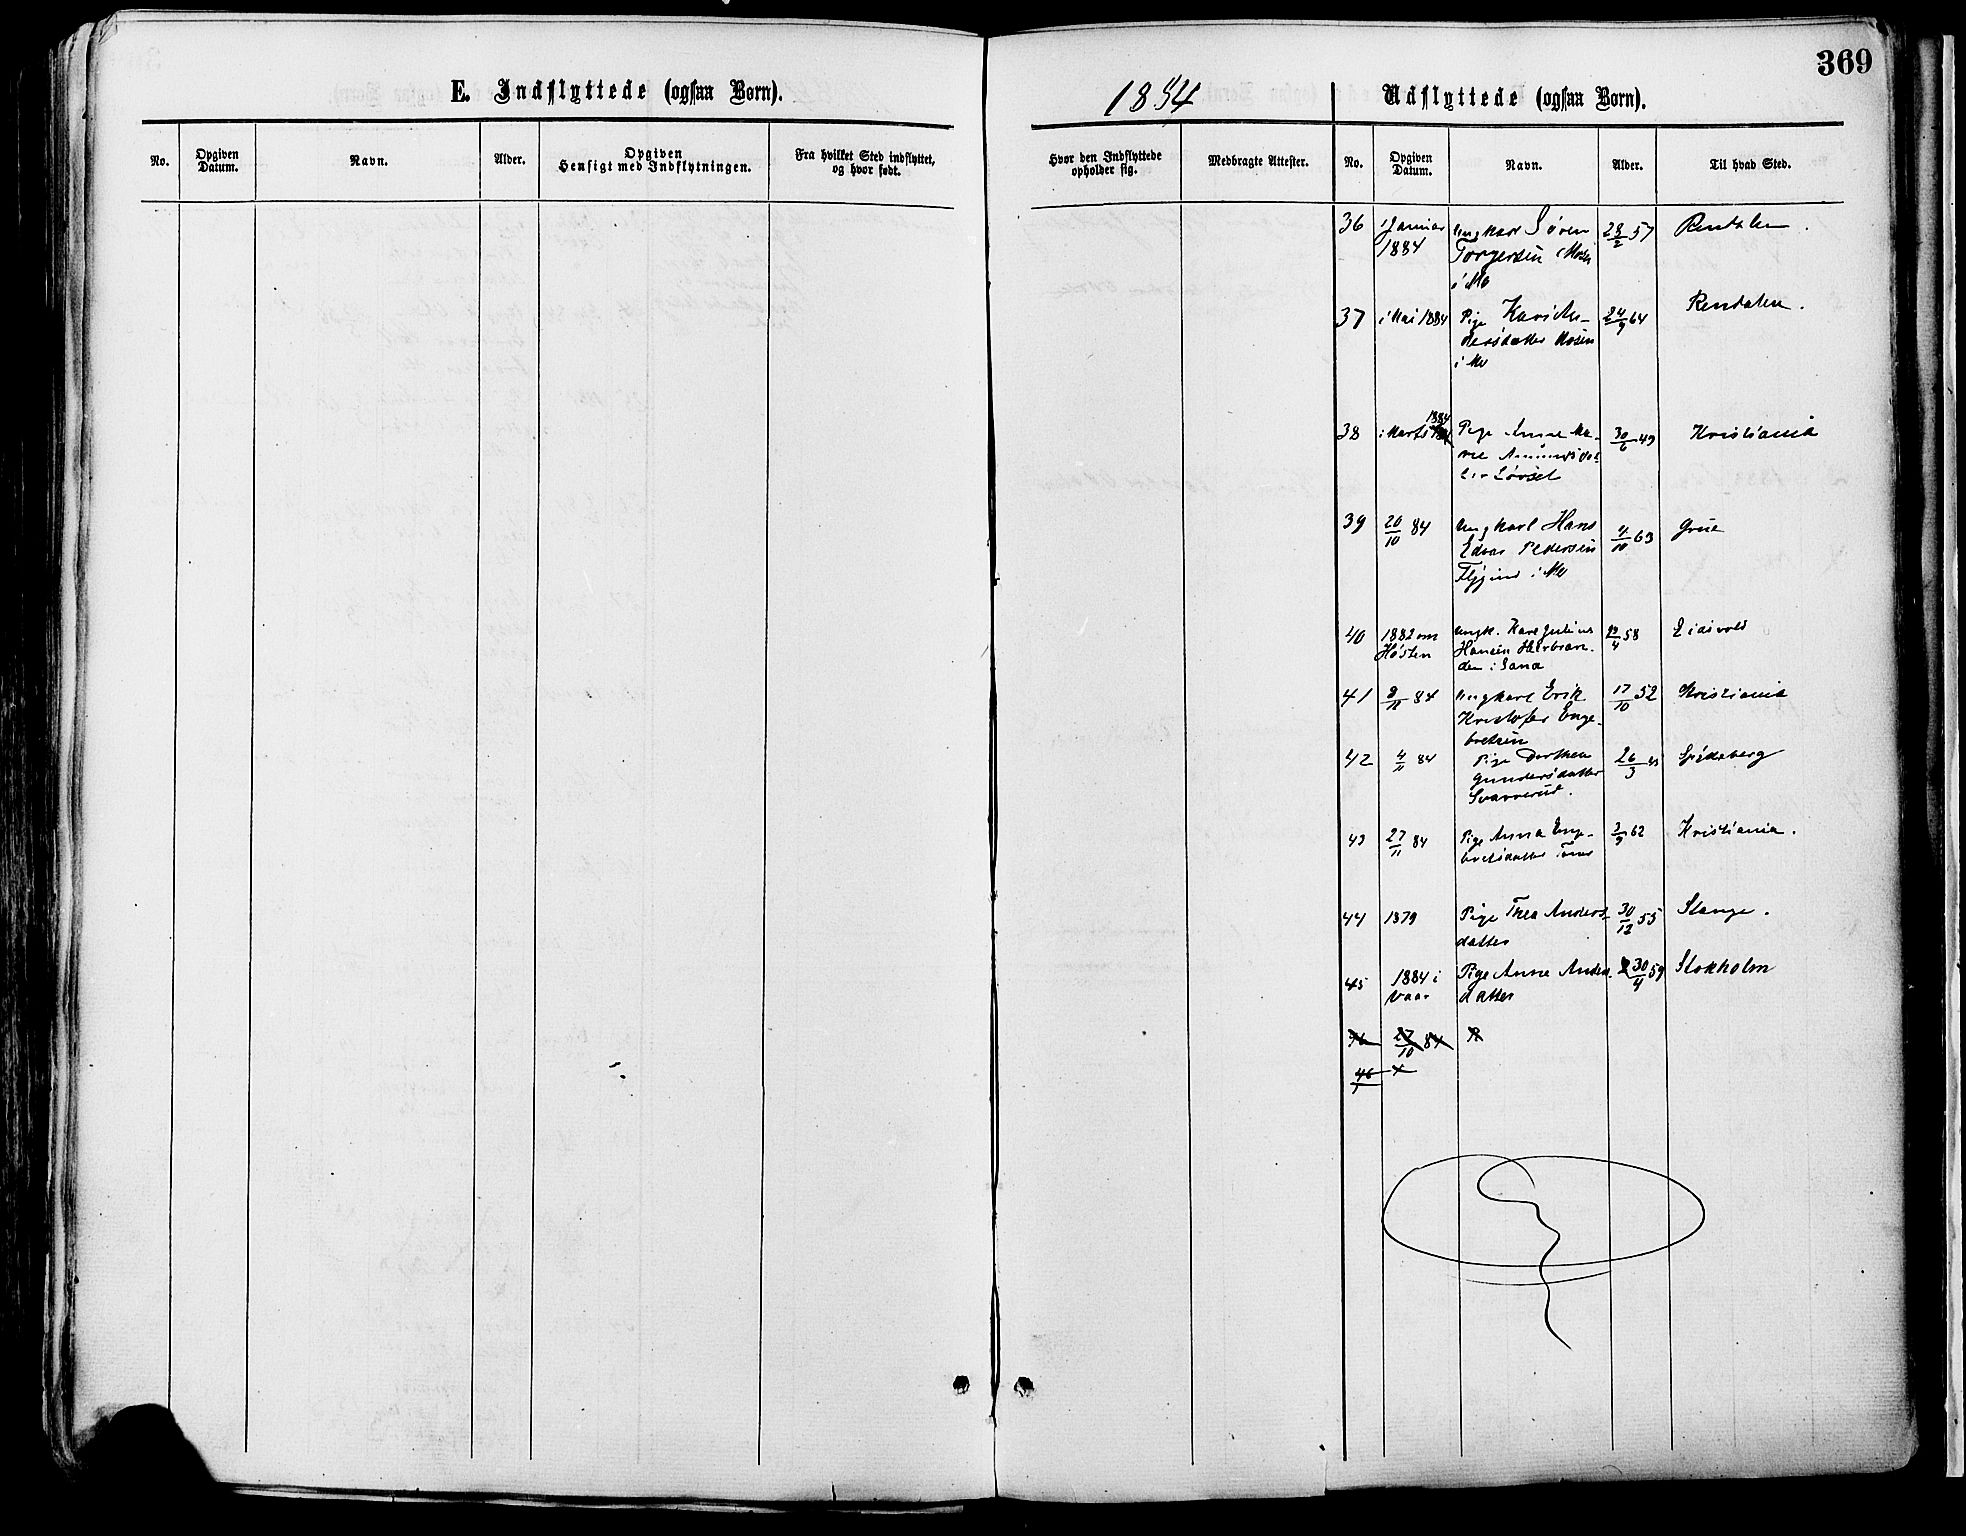 369
E. Indflyttede (ogsaa Børn).
1884
Udflyttede (ogsaa Børn).
No.
Opgiven
Datum.
Navn.
Alder.
Opgiven
Hensigt med Indflytningen.
Fra hvilket Sted indflyttet,
og hvor født.
Hvor den Indflyttede
opholder sig.
Medbragte Attester.
No.
Opgiven
Datum.
Navn.
Alder.
Til hvad Sted.
36
i Januar
1884
Ungkarl Søren
Torgersen Mosen
i Mo
28/2 57
Rendalen.
37
i Mai 1884
Pige Kari An-
dersdatter Mosen
i Mo
24/9 64
Rendalen.
38
i Marts
1884
Pige Anne Ma-
rie Amundsdat-
ter Lövset
30/6 49
Kristiania
39
20/10 84
Ungkarl Hans
Edvar Pedersen
i Mo
4/10 63
Grue
40
1882 om
Høsten
Ungk. Karl Julius
Hansen
58
Eidsvold
41
84
Ungkarl Erik
Kristofer Enge-
bretsen
17/10 52
Kristiania
42
4/11 84
Pige Dorthea
Gundersdatter
26/3
Spydeberg
43
27/11 84
Pige Anna Eng-
bretsdatter
62
Kristiania.
44
1879
Pige Thea Anders-
datter
30/12 55
Stange.
45
1884 i
Vaar
Pige Anne Anders-
datter
30/4 59
Stokholm
27/10 84
46